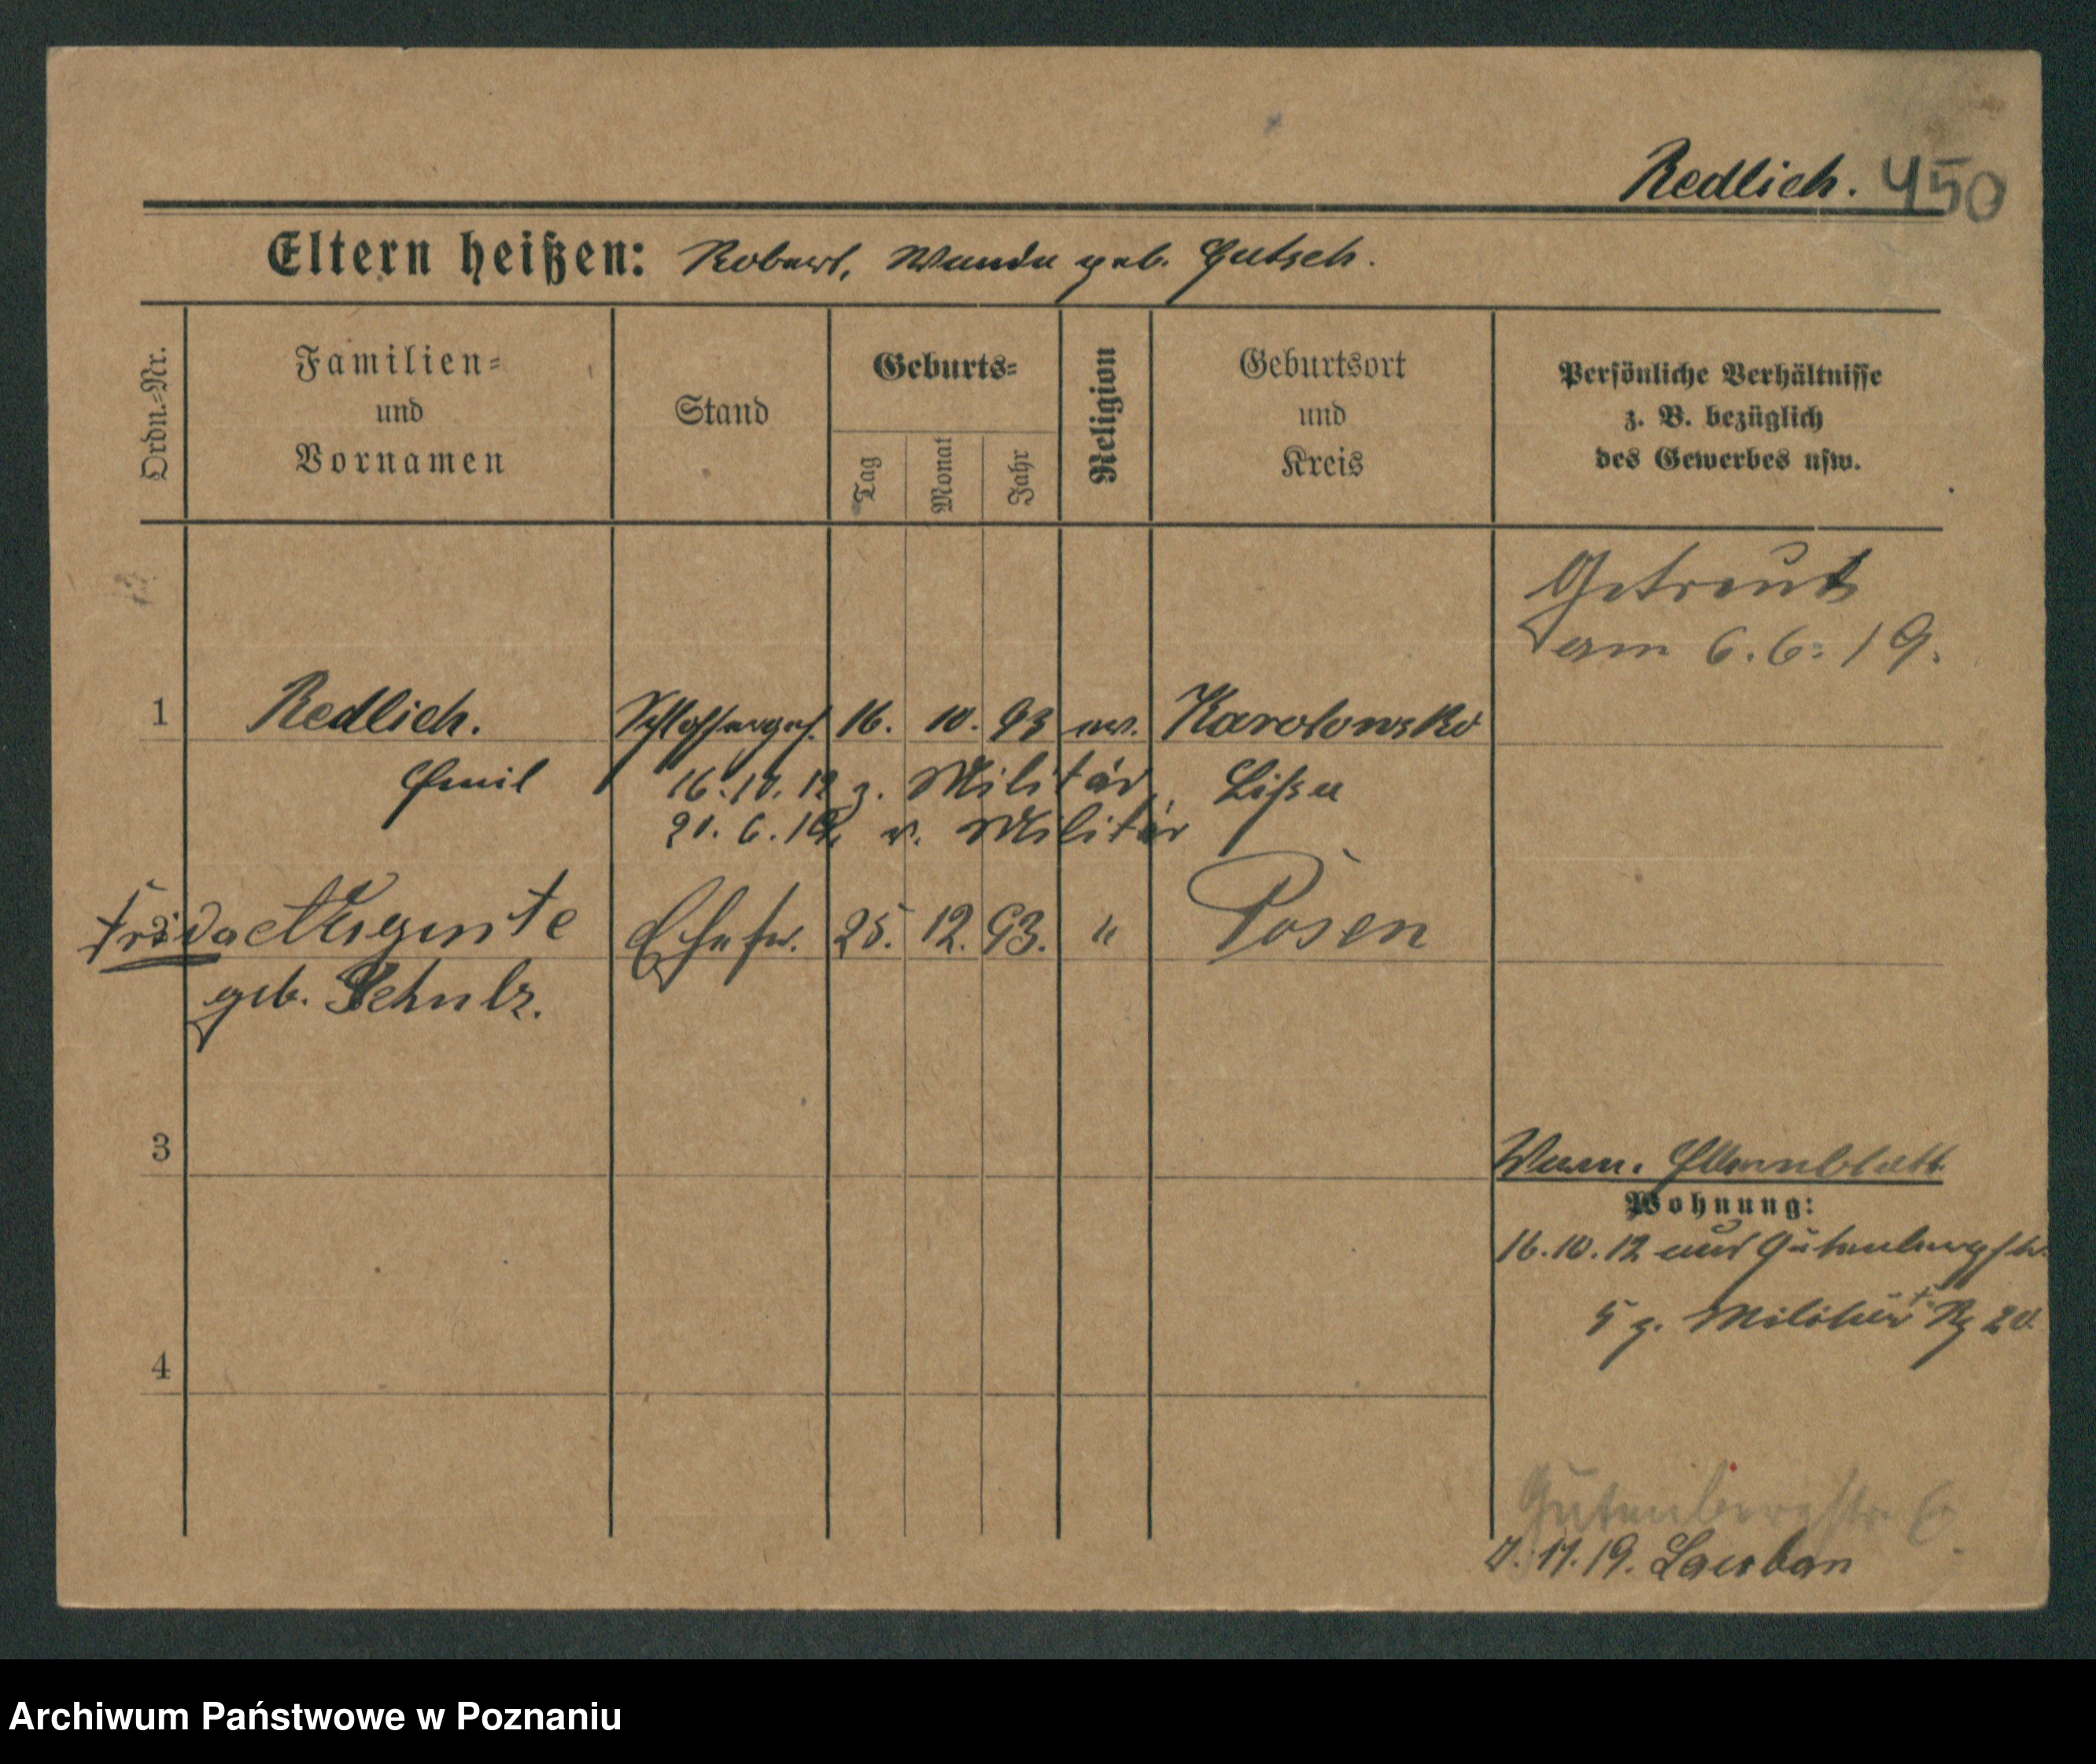 Redlich. 450
Eltern heißen: Robert, Wanda geb. Gutsch.
Ordn.=Nr.
Familien=
und
Vornamen
Stand
Geburts=
Tag
Monat
Jahr
Religion
Geburtsort
und
Kreis
Persönliche Verhältnisse
z. B. bezüglich
des Gewerbes usw.
Getraut
am 6.6.19.
1 Redlich. Schlosserges. 16. 10. 93 ev. Karolowsko
Emil 16.10.12 z. Militär Lissa
6.19. v. Militär
Frida geb. Schulz. Ehefr. 25. 12. 93. " Posen
3
Elternblatt
Wohnung:
16.10.12 aus Gutenbergstr.
5 z. Militär 20.
4
Gutenbergstr.
19. Lauban
Archiwum Państwowe w Poznaniu